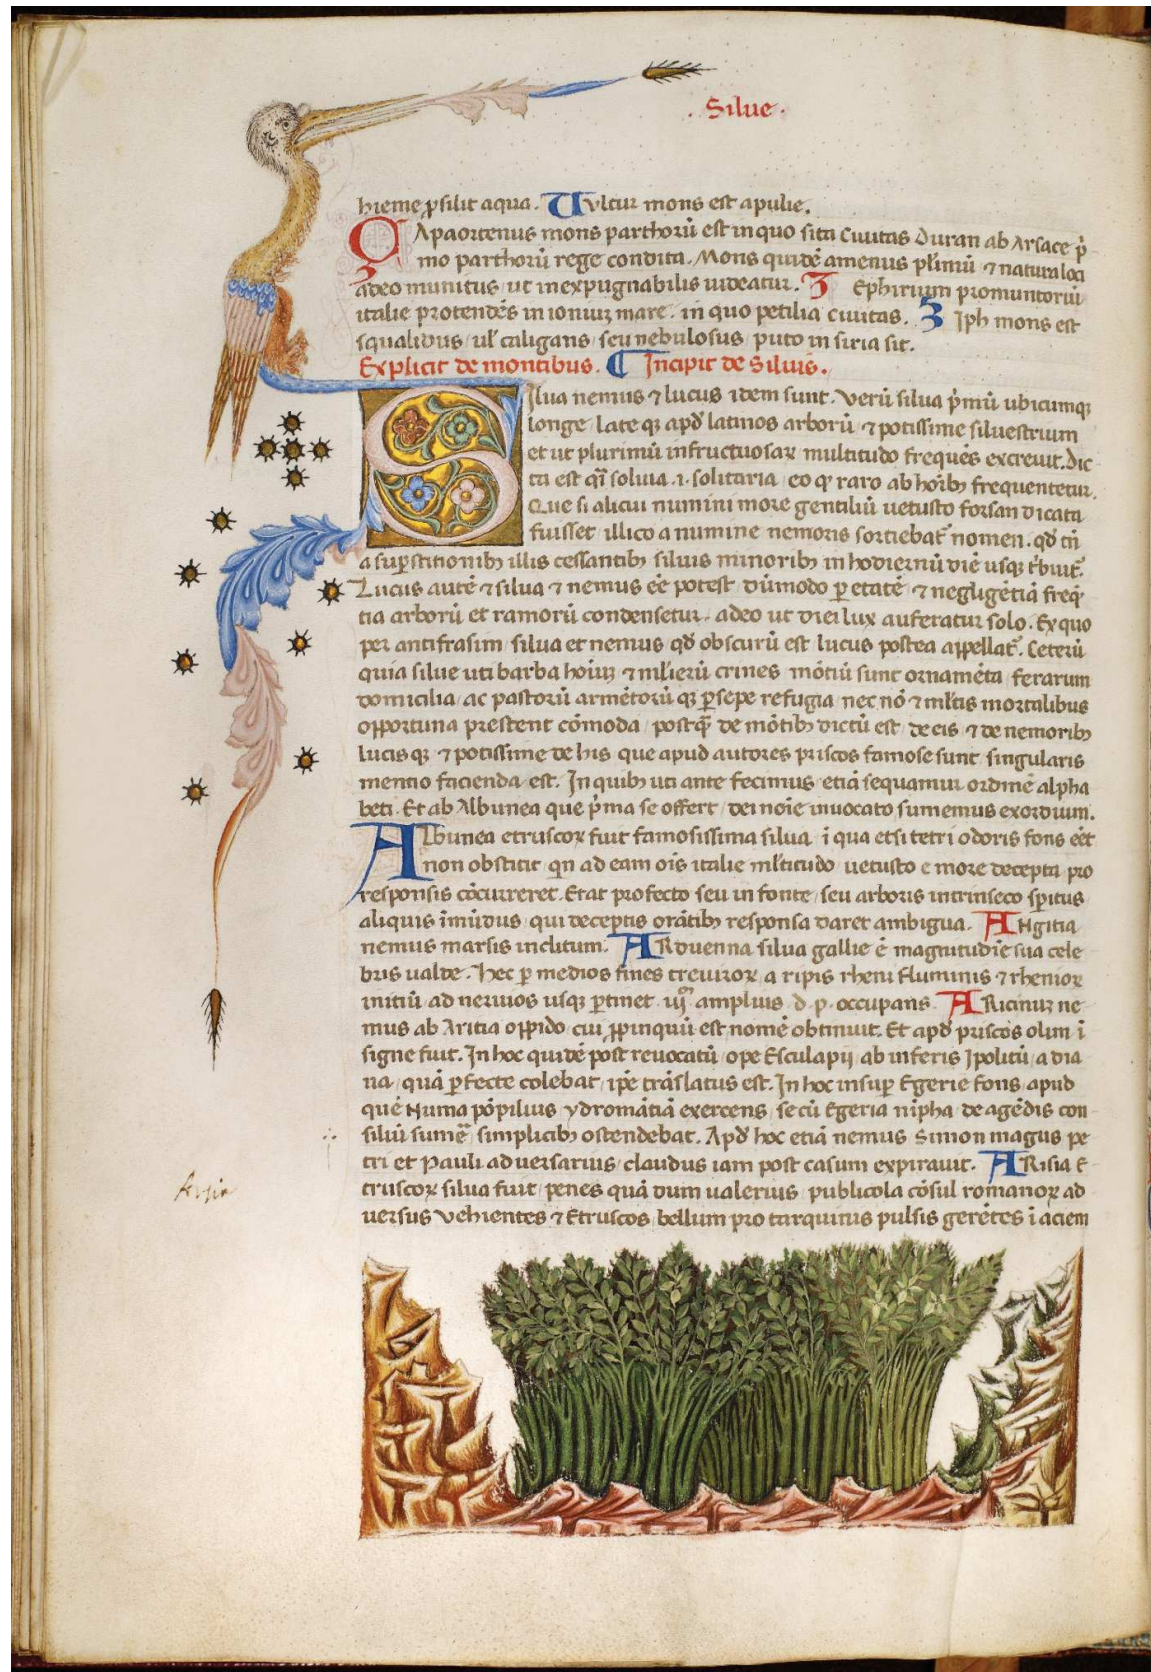 · Silue ·
hieme ꝓsilit aqua. Vultur mons est apulie.
Zapaortenus mons parthorū est in quo sita Ciuitas Duran ab Arsace p̄
mo parthorū rege condita. Mons quidē amenus plimū ⁊ natura loci
adeo munitus ut inexpugnabilis uideatur. Zephirium promuntoriū
italie protendēs in ioniuꝫ mare. in quo petilia ciuitas. Ziph mons est
squalidus / ul' caligans / seu nebulosus / puto in siria sit.
Explicit de montibus. ¶ Incipit de Siluis.
Silua nemus ⁊ lucus idem sunt. Verū silua p̄mū ubicumqꝫ
longe / late qꝫ apd̄ latinos arborū / ⁊ potissime siluestrium
et ut plurimū infructuosaꝝ multitudo frequēs excreuit. Dic
ta est q̄i soliua .i. solitaria / eo qꝫ raro ab hoībꝫ frequentetur.
Que si alicui numini more gentiliū uetusto forsan dicata
fuisset illico a numine nemoris sortiebat᷑ nomen. qd̄ tn̄
a suꝑstitionibꝫ illis cessantibꝫ siluis minoribꝫ in hodiernū diē usqꝫ t̄buit᷑.
Lucus autē ⁊ silua ⁊ nemus eē potest dūmodo ꝑ etatē ⁊ negligētiā freq̄
tia arborū et ramorū condensetur. adeo ut diei lux auferatur solo. Ex quo
per antifrasim / silua et nemus qd̄ obscurū est / lucus postea appellat᷑. Ceterū
quia silue uti barba hoīuꝫ ⁊ mlierū crines / mōtiū sunt ornamēta / ferarum
domicilia / ac pastorū armētorū qꝫ ꝑsepe refugia / nec nō ⁊ mltis mortalibus
opportuna prestent cōmoda / postq̄ de mōtibꝫ dictū est / de eis ⁊ de nemoribꝫ
lucis qꝫ ⁊ potissime de his que apud autores priscos famose sunt singularis
mentio facienda est. In quibꝫ uti ante fecimus / etiā sequamur ordinē alpha
beti. Et ab Albunea que p̄ma se offert / dei noīe inuocato sumemus exordium.
Albunea etruscoꝝ fuit famosissima silua / ī qua etsi tetri odoris fons eēt
non obstitit qn̄ ad eam oīs italie mltitudo uetusto e more decepta pro
responsis cōcurreret. Erat profecto seu in fonte / seu arboris intrinseco spītus
aliquis īmūdus / qui deceptis orātibꝫ responsa daret ambigua. Angitia
nemus marsis inclitum. Arduenna silua gallie ē magnitudīe sua cele
bris ualde. Hec ꝑ medios fines treuiroꝝ a ripis rheni fluminis ⁊ rhenioꝝ
initiū ad neruios usqꝫ ꝑtinet .iiij. amplius .d. p. occupans. Aricinuꝫ ne
mus ab Aritia oppido cui ꝓpinquū est nomē obtinuit. Et apd̄ priscos olim ī
signe fuit. In hoc quidē post reuocatū ope Esculapij ab inferis Ipolitū / a dia
na / quā ꝑfecte colebat / ip̄e trāslatus est. In hoc insuꝑ Egerie fons / apud
quē Numa pōpilius ydromātiā exercens / se cū Egeria nīpha de agēdis con
siliū sumē / simplicibꝫ ostendebat. Apd̄ hoc etiā nemus Simon magus pe
tri et Pauli aduersarius / claudus iam post casum expirauit. Arisia E
truscoꝝ silua fuit / penes quā dum ualerius publicola cōsul romanoꝝ ad
uersus Vehientes ⁊ Etruscos bellum pro tarquinis pulsis gerētes ī aciem
Arsia